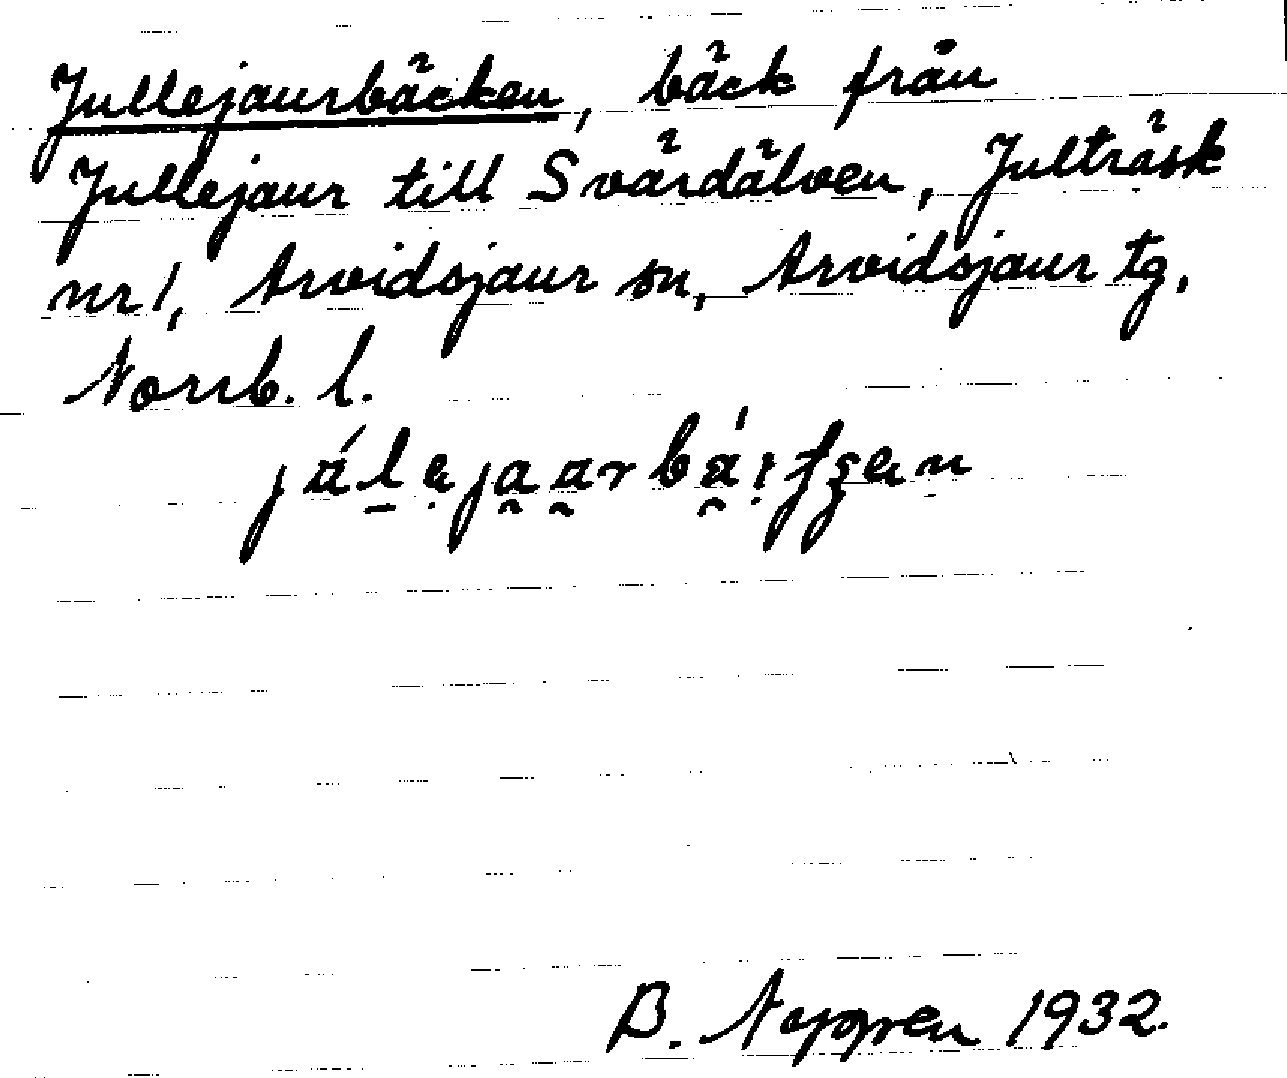 Jullejaurbäcken, bäck från
Jullejaur till Svärdälven, Julträsk
nr 1, Arvidsjaur sn, Arvidsjaur tg,
Norrb. l.
B. Neppen 1932.